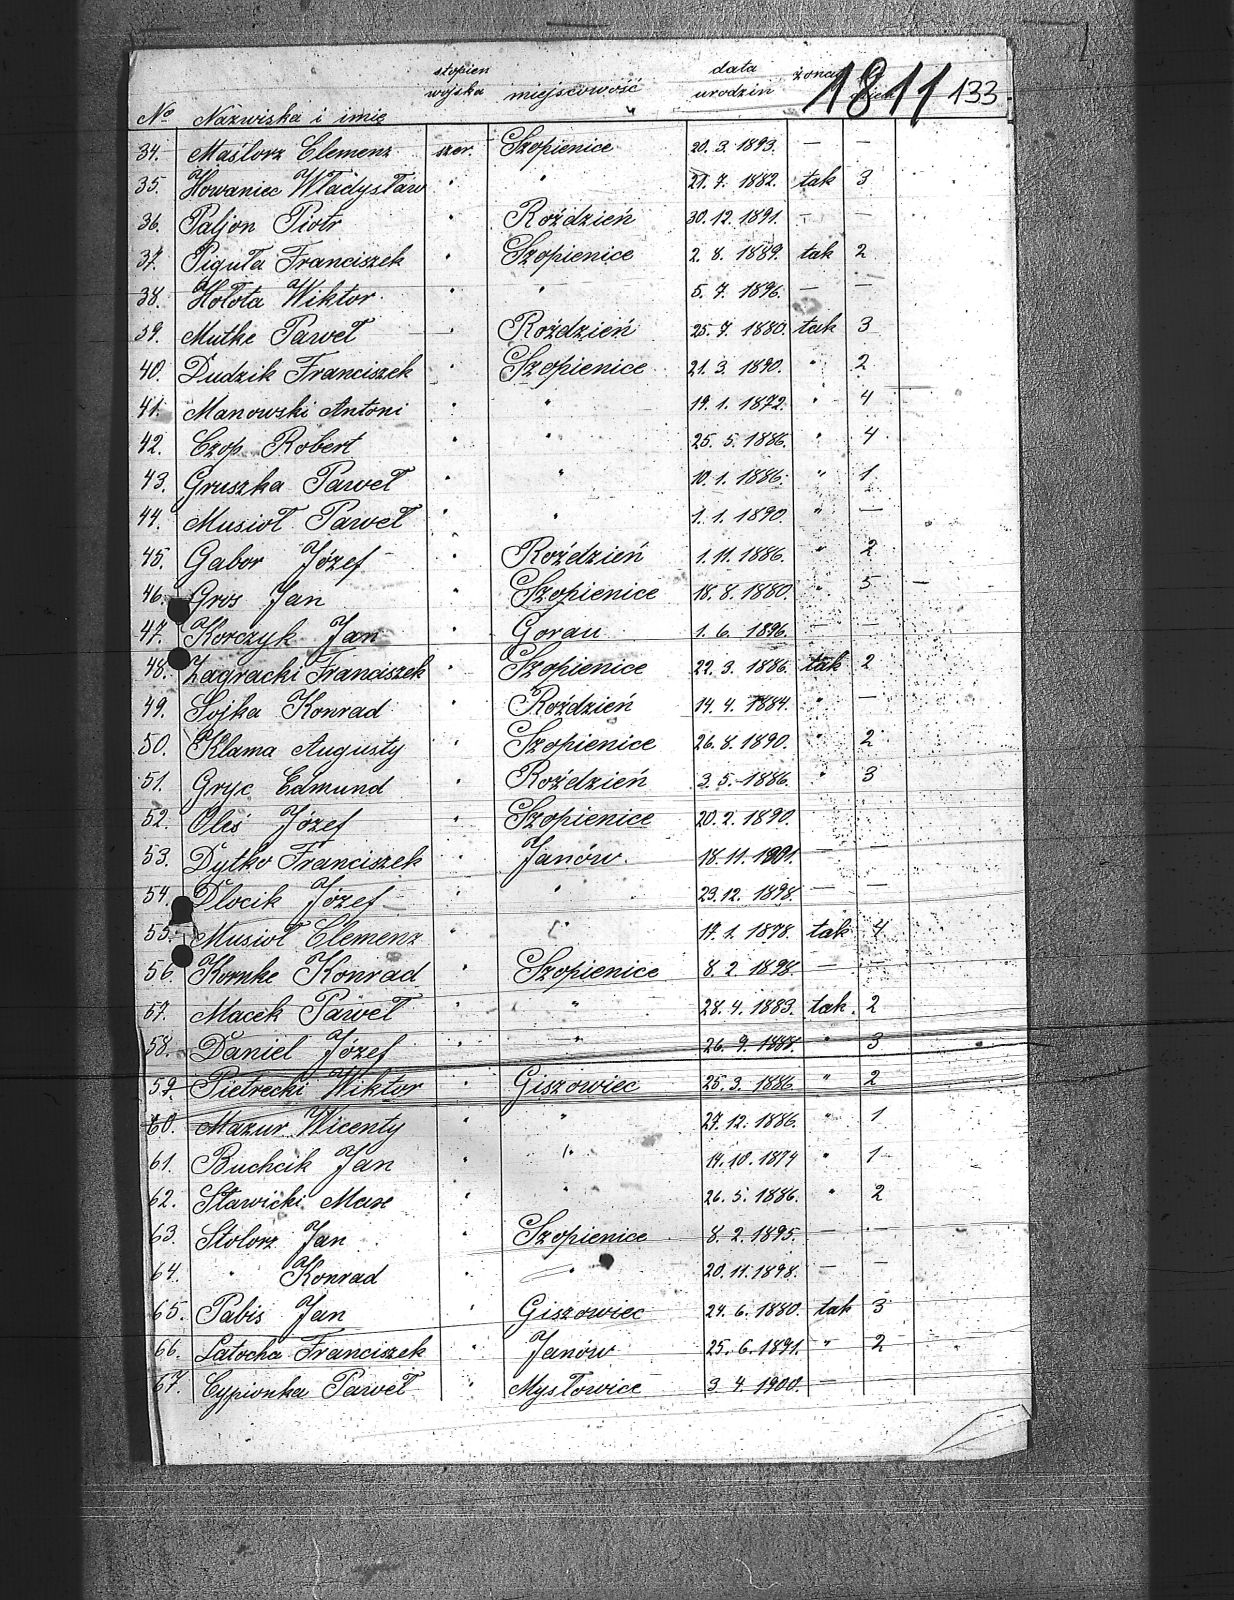 1811 133
No Nazwiska i imię stopień wojska miejscowość data urodzin żonaty
34. Maślorz Clemenz szer. Szopienice 20. 3. 1893. — —
35. Howaniec Władysław " " 21. 7. 1882. tak 3
36. Paljon Piotr " Roździeń 30. 12. 1891. — —
37. Piguła Franciszek " Szopienice 2. 8. 1889. tak 2
38. Hołota Wiktor " " 5. 7. 1896. — —
39. Mutke Paweł " Roździeń 25. 7. 1880. tak 3
40. Dudzik Franciszek " Szopienice 21. 3. 1890. " 2
41. Manowski Antoni " " 19. 1. 1872. " 4
42. Czop Robert " " 25. 5. 1886. " 4
43. Gruszka Paweł " " 10. 1. 1886. " 1
44. Musioł Paweł " " 1. 1. 1890. " —
45. Gabor Józef " Roździeń 1. 11. 1886. " 2
46. Gros Jan " Szopienice 18. 8. 1880. " 5
47. Korczyk Jan " Gorau 1. 6. 1896. — —
48. Zagracki Franciszek " Szopienice 22. 3. 1886. tak 2
49. Sojka Konrad " Roździeń 14. 4. 1884. " —
50. Klama Augusty " Szopienice 26. 8. 1890. " 2
51. Gryc Edmund " Roździeń 3. 5. 1886. " 3
52. Oleś Józef " Szopienice 20. 2. 1890.
53. Dytko Franciszek " Janów 18. 11. 1901. — —
54. Dlocik Józef " " 23. 12. 1898. — —
55. Musioł Clemenz " 17. 1. 1878. tak 4
56. Kornke Konrad " Szopienice 8. 2. 1898 — —
57. Macek Paweł " " 28. 4. 1883. tak 2
58. Daniel Józef " " 26. 9. " 3
59. Pietrecki Wiktor " Giszowiec 25. 3. 1886. " 2
60. Mazur Wicenty " " 27. 12. 1886. " 1
61. Buchcik Jan " " 14. 10. 1874 " 1
62. Sławicki Max " " 26. 5. 1886. " 2
63. Stolorz Jan " Szopienice 8. 2. 1895. — —
64. " Konrad " " 20. 11. 1898. — —
65. Pabis Jan " Giszowiec 24. 6. 1880. tak 3
66. Latocha Franciszek " Janów 25. 6. 1891. " 2
67. Cypionka Paweł " Mysłowice 3. 4. 1900. — —